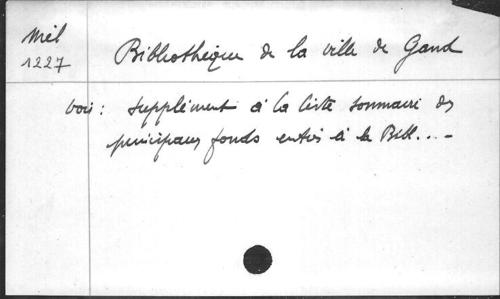 Mél
1227
Bibliothèque de la ville de Gand
voir : supplément à la liste sommaire des
principaux fonds entrés à la Bibl...-